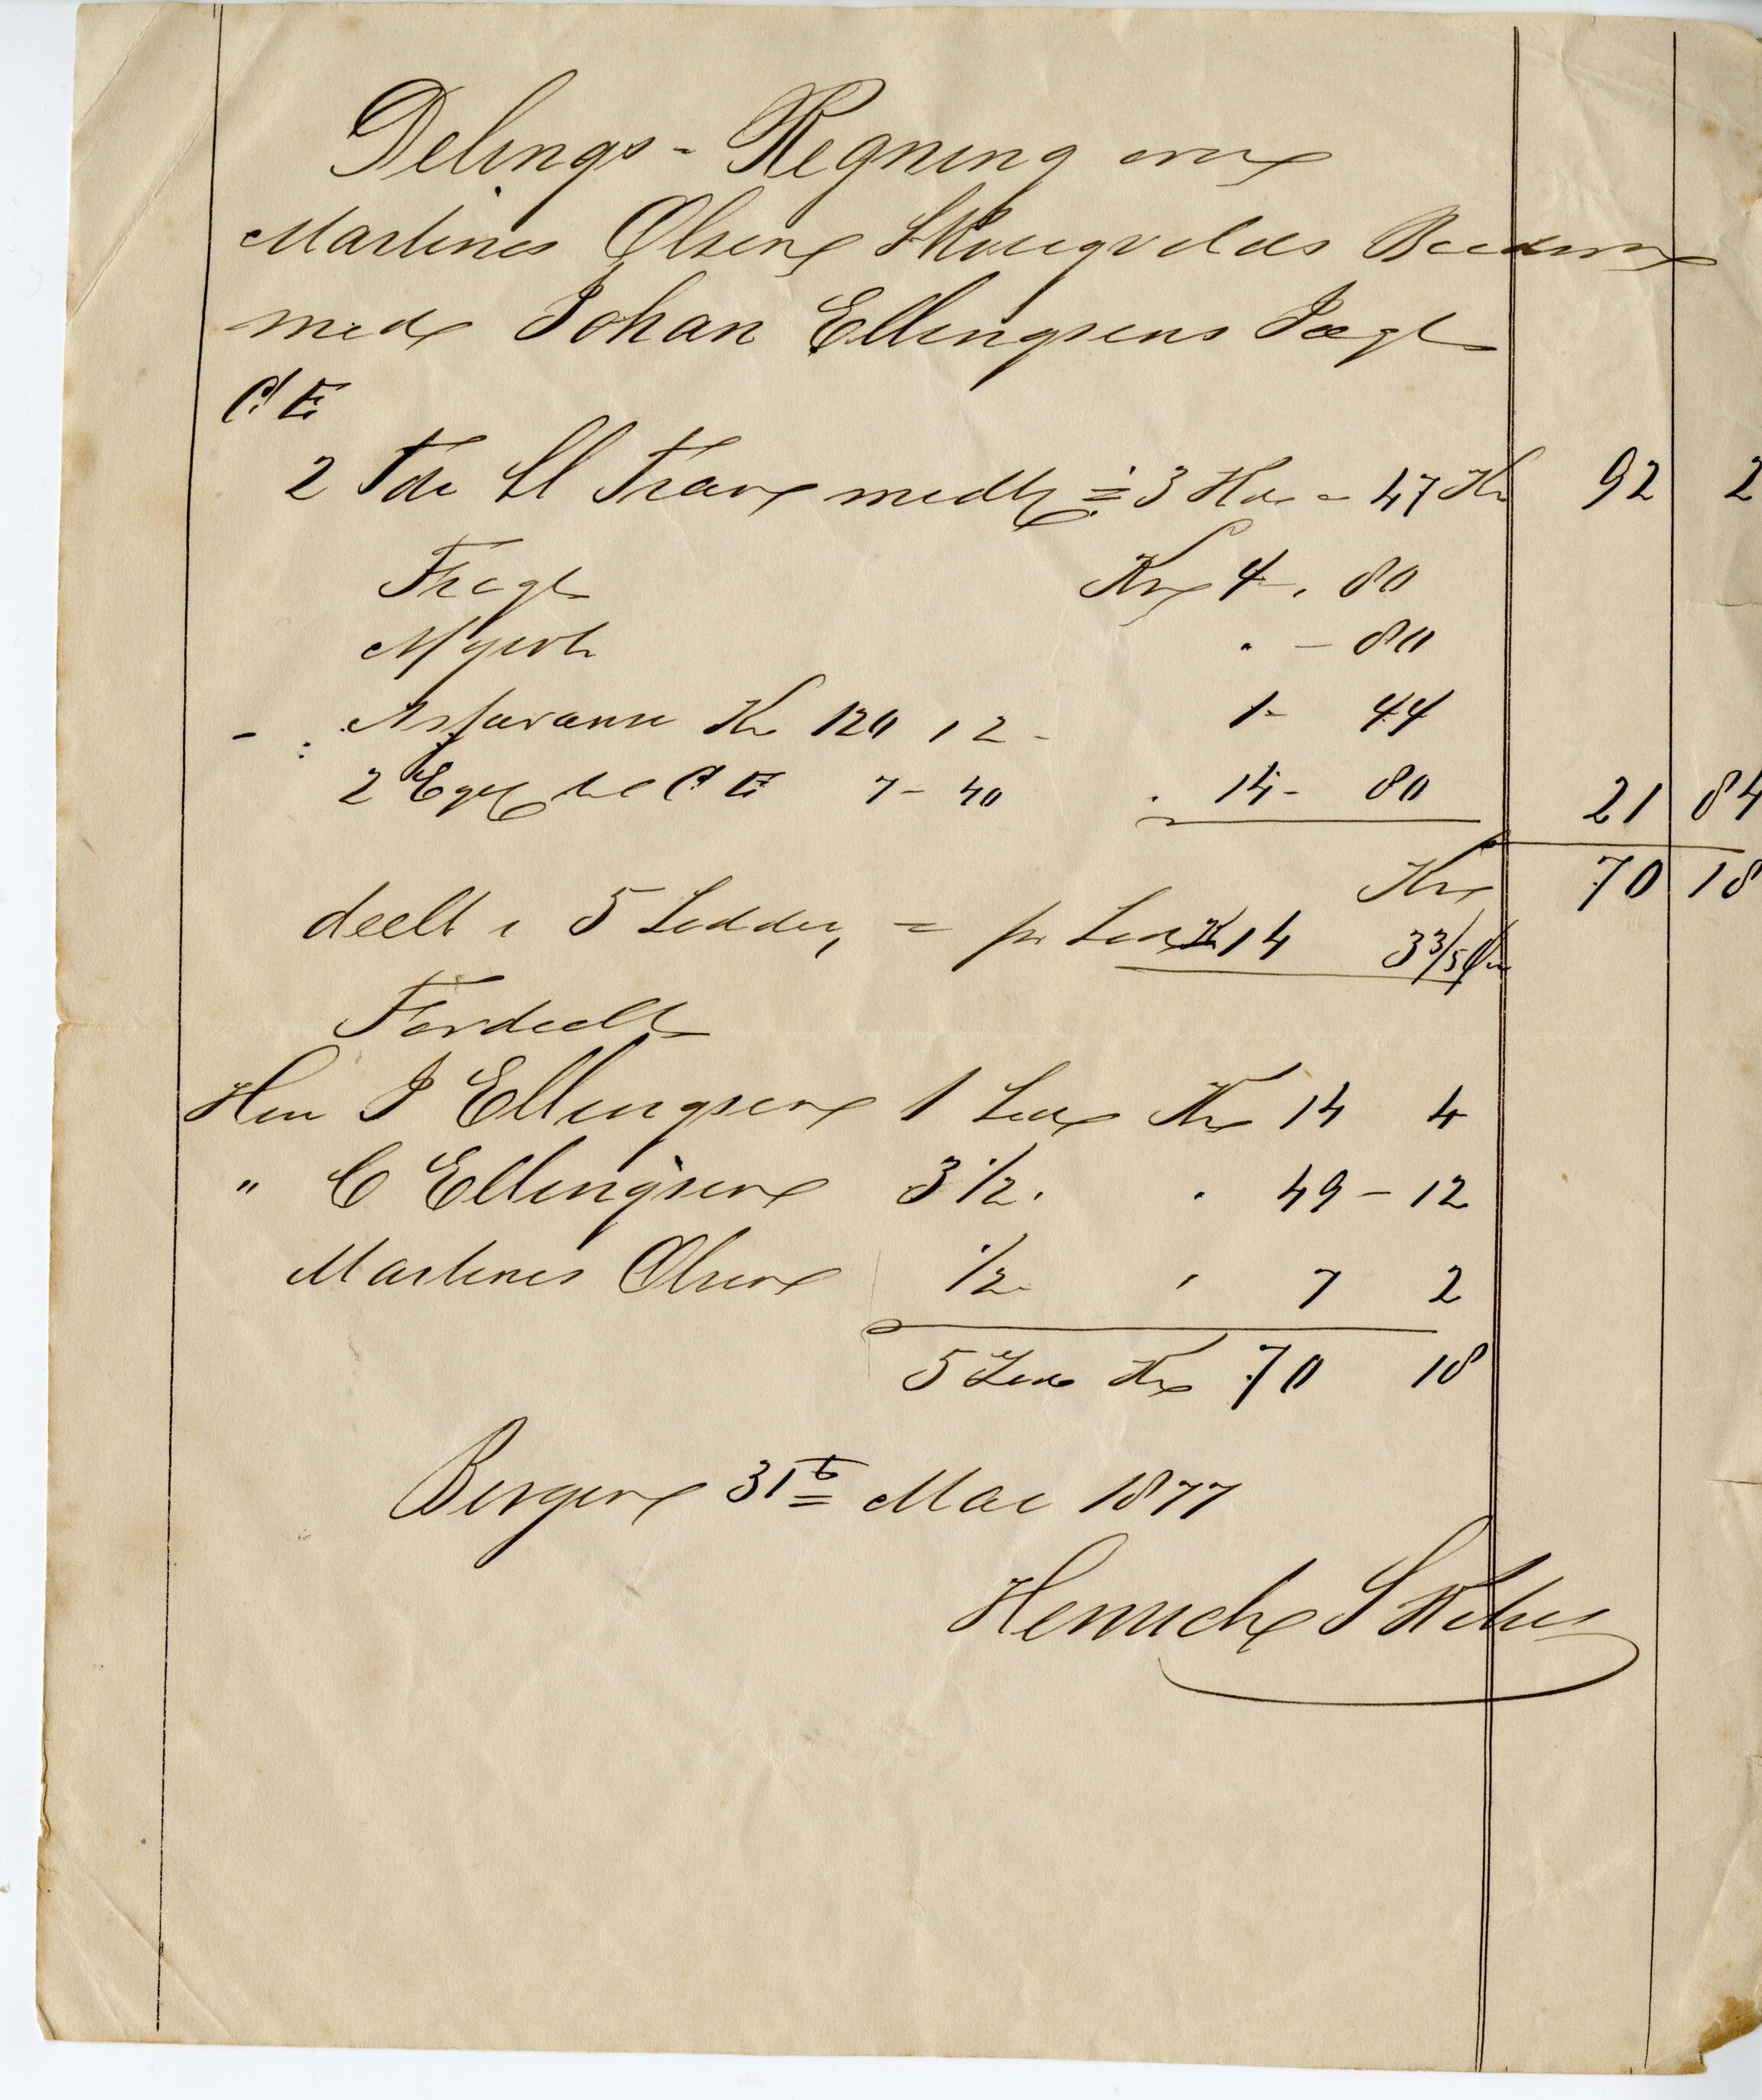 Delings-Regning over
Martines Olsens Skougvolds
med Johan Ellingsens Jægt
C E
2 Tdr Tran 3 Kr - 47 Kr 92 2
Fragt Kr 4. 80
. - 80
Assurance Kr 120 12 - 1 - 44
2 til C E 7 - 40 . 14 - 80 21 84
Kr 70 18
deelt i 5 Lodder, = pr Lod K 14 3 3/5
Fordeelt
Herr J Ellingsen 1 Lod Kr 14 4
" C Ellingsen 3 1/2 . . 49 - 12
Martines Olsen 1/2 7 2
5 Lod Kr 70 18
Bergen 31t Mai 1877
Henrich